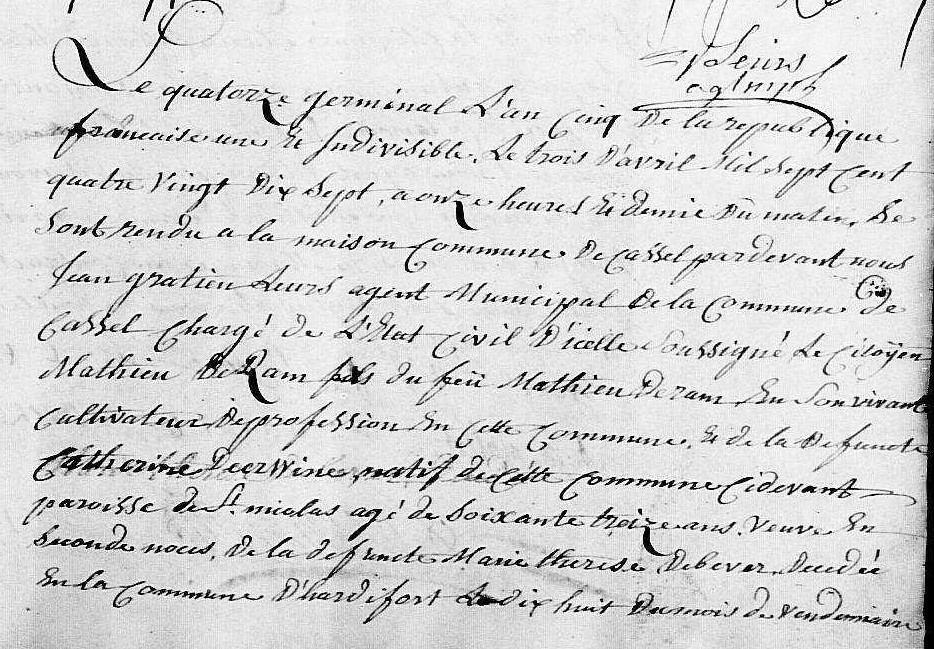 Leurs
agt mpl
Le quatorze germinal L'an Cinq De la republique
francaise une Et Indivisible. Le trois D'avril Mil Sept Cent
quatre Vingt Dix Sept, a onze heures Et demie Du matin, Se
Sont rendu a la maison Commune De Cassel pardevant nous
Jean gratien Leurs agent Municipal De la Commune de
Cassel Chargé de L'Etat Civil D'icelle Soussigné Le Citoÿen
Mathieu De Ram fils du feü Mathieu Deram, En Son vivant
Cultivateur De profession En Cette Commune, Et de la Defuncte
Catherine Deerwine, natif de Cette Commune Cidevant
paroisse de St nicolas agé de Soixante treize ans. Veuve En
Seconde noces, De la defuncte Marie therese Debever, Decedée
En la Commune D'hardifort Le dix huit Du mois de Vendemiaire